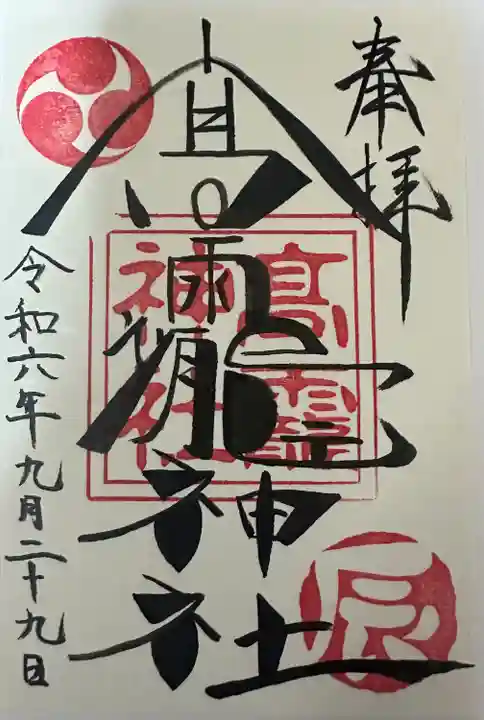 奉拝
高龗神社
高龗
神社
辰
令和六年九月二十九日